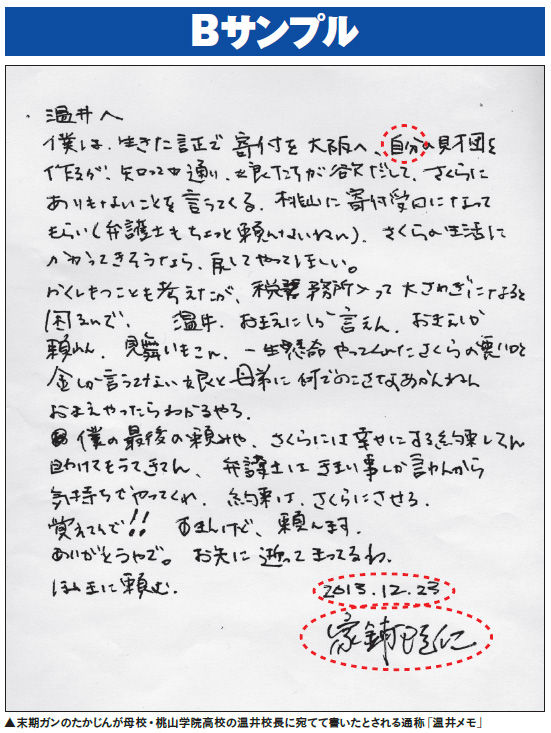 Bサンプル
温井へ
僕は、生きた証正で寄付を大阪へ、自分の財団を
作るが、知っての通り、娘たちが欲だして、さくらに
ありもないことを言うてくる。桃山に寄付受口になって
もらい(弁護士もちょっと頼んないねん)、さくらの生活に
かかってきそうなら、戻してやってほしい。
かくしもつことも考えたが、税務所入って大さわぎになると
困るんで、温井、おまえにしか言えん、おまえしか
頼れん、見舞いもこん、一生懸命やってくれたさくらの悪い
金しか言うてない娘と母弟に何でのこさなあかんねん
おまえやったらわかるやろ。
僕の最後の頼みや、さくらには幸せにする約束してん
助けてもうてきてん、弁護士はきまい事しか言わんから
気持ちでやってくれ、約束は、さくらにさせろ。
覚えてんで!!すまんけど、頼んます。
ありがとうやで。お先に逝ってまってるわ。
ほんまに頼む。
2013.12.23
家鋪隆仁
▲末期ガンのたかじんが母校・桃山学院高校の温井校長に宛てて書いたとされる通称「温井メモ」